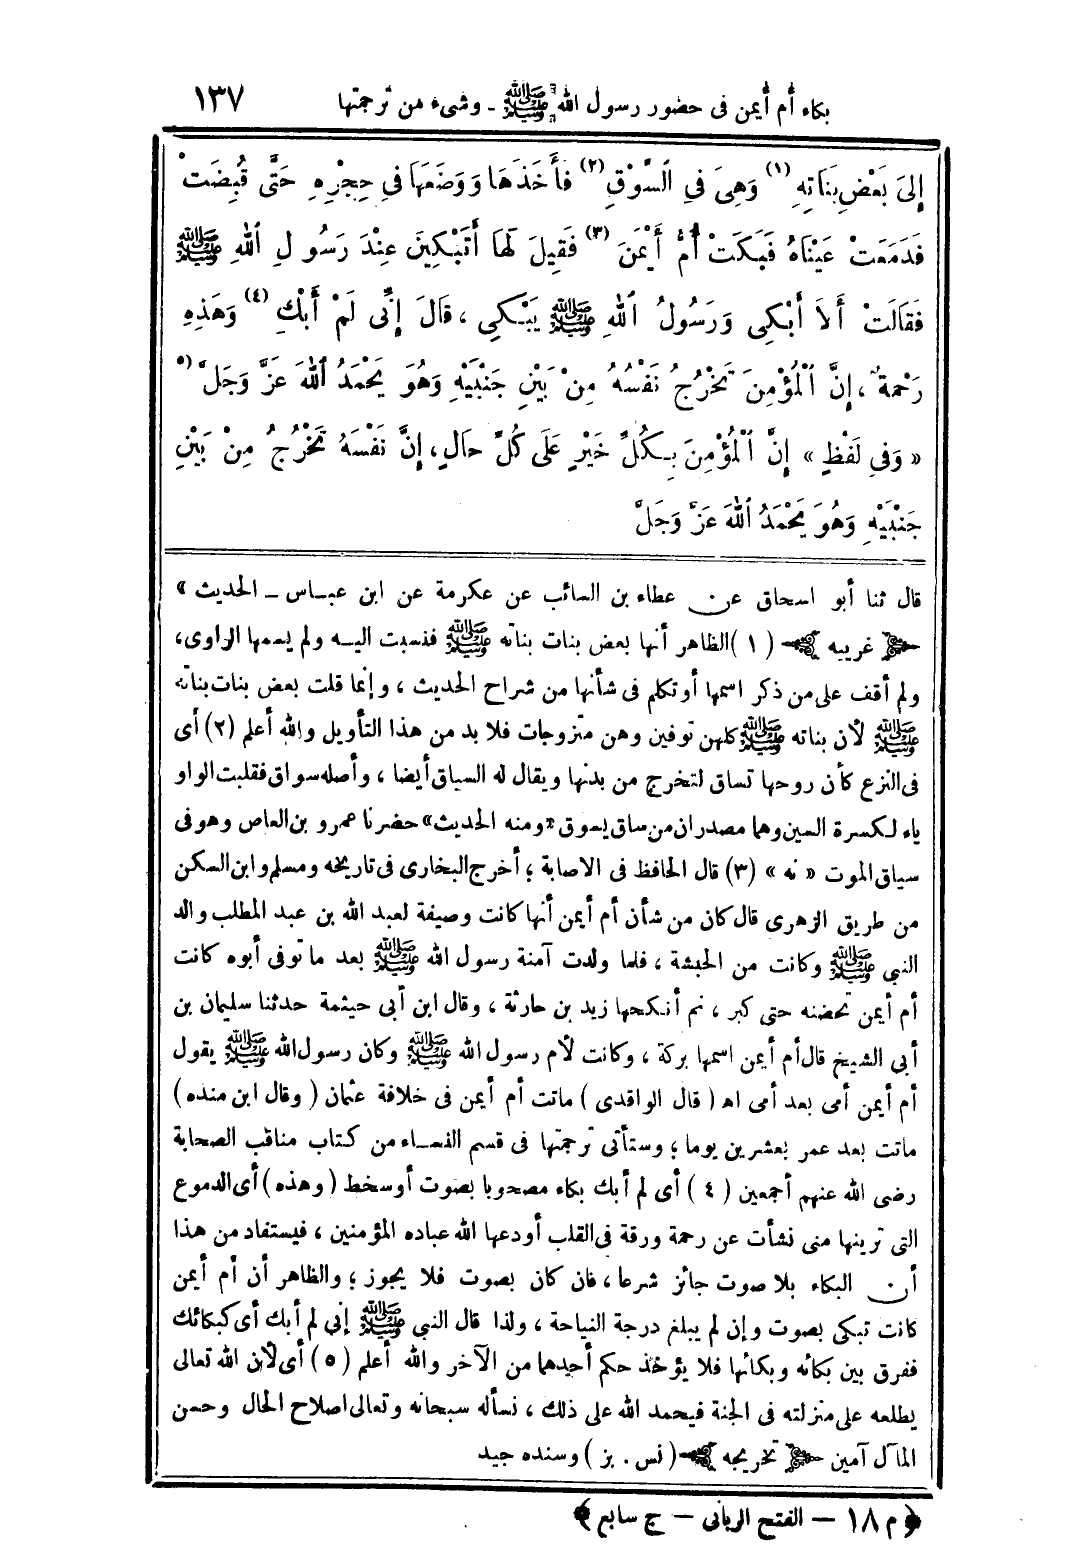 بكاء أم أيمن فى حضور رسول الله ﷺ - وشىء من ترجمتها ١٣٧
إِلىَ بَعْضِ بَنَاتِهِ (١) وَهِىَ فِي السَّوْقِ (٢) فَأَخَذَهَا وَوَضَعَهَا فِي حِجْرِهِ حَتَّى قُبِضَتْ
فَدَمَعَتْ عَيْنَاهُ فَبَكَتْ أُمُّ أَيْمَنَ (٣) فَقِيلَ لَهَا أَتَبْكِينَ عِنْدَ رَسُولِ اللهِ ﷺ
فَقَالَتْ أَلاَ أَبْكِى وَرَسُولُ اللهِ ﷺ يَبْكِي ، قَالَ إِنِّى لَمْ أَبْكِ (٤) وَهَذِهِ
رَحْمَةٌ ، إِنَّ الْمُؤْمِنَ تَخْرُجُ نَفْسُهُ مِنْ بَيْنِ جَنْبَيْهِ وَهُوَ يَحْمَدُ اللهَ عَزَّ وَجَلَّ (٥
« وَفِى لَفْظٍ » إِنَّ الْمُؤْمِنَ بِكُلِّ خَيْرٍ عَلَى كُلِّ حَالٍ ، إِنَّ نَفْسَهُ تَخْرُجُ مِنْ بَيْنِ
جَنْبَيْهِ وَهُوَ يَحْمَدُ اللهَ عَزَّ وَجَلَّ
قال ثنا أبو اسحاق عن عطاء بن السائب عن عكرمة عن ابن عباس ــ الحديث »
﴿ غريبه ﴾ (١) الظاهر أنها بعض بنات بناته ﷺ فنسبت اليه ولم يسمها الراوى،
ولم أقف على من ذكر اسمها أو تكلم فى شأنها من شراح الحديث ، وإنما قلت بعض بنات بناته
ﷺ لأن بناته ﷺ كلهن توفين وهن متزوجات فلا بد من هذا التأويل والله أعلم (٢) أى
فى النزع كأن روحها تساق لتخرج من بدنها ويقال له السياق أيضا ، وأصله سواق فقلبت الواو
ياء لكسرة السين وهما مصدران من ساق يسوق «ومنه الحديث» حضرنا عمرو بن العاص وهو فى
سياق الموت « نه » (٣) قال الحافظ فى الاصابة ؛ أخرج البخارى فى تاريخه ومسلم وابن السكن
من طريق الزهرى قال كان من شأن أم أيمن أنها كانت وصيفة لعبد الله بن عبد المطلب والد
النبي ﷺ وكانت من الحبشة ، فلما ولدت آمنة رسول الله ﷺ بعد ما توفى أبوه كانت
أم أيمن تحضنه حتى كبر ، ثم أنكحها زيد بن حارثة ، وقال ابن أبى خيثمة حدثنا سليمان بن
أبى الشيخ قال أم أيمن اسمها بركة ، وكانت لأم رسول الله ﷺ وكان رسول الله ﷺ يقول
أم أيمن أمى بعد أمى اه ( قال الواقدى ) ماتت أم أيمن فى خلافة عثمان ( وقال ابن منده )
ماتت بعد عمر بعشرين يوما ؛ وستأتى ترجمتها فى قسم النساء من كتاب مناقب الصحابة
رضى الله عنهم أجمعين (٤) أى لم أبك بكاء مصحوبا بصوت أو سخط (وهذه) أى الدموع
التى ترينها منى نشأت عن رحمة ورقة فى القلب أودعها الله عباده المؤمنين ، فيستفاد من هذا
أن البكاء بلا صوت جائز شرعا ، فان كان بصوت فلا يجوز ؛ والظاهر أن أم أيمن
كانت تبكى بصوت وإن لم يبلغ درجة النياحة ، ولذا قال النبي ﷺ إنى لم أبك أى كبكائك
ففرق بين بكائه وبكائها فلا يؤخذ حكم أحدهما من الآخر والله أعلم (٥) أى لأن الله تعالى
يطلعه على منزلته فى الجنة فيحمد الله على ذلك ، نسأله سبحانه وتعالى اصلاح الحال وحسن
المآل آمين ﴿ تخريجه ﴾ (نس . بز) وسنده جيد
﴿ م ١٨ – الفتح الربانى – ج سابع ﴾